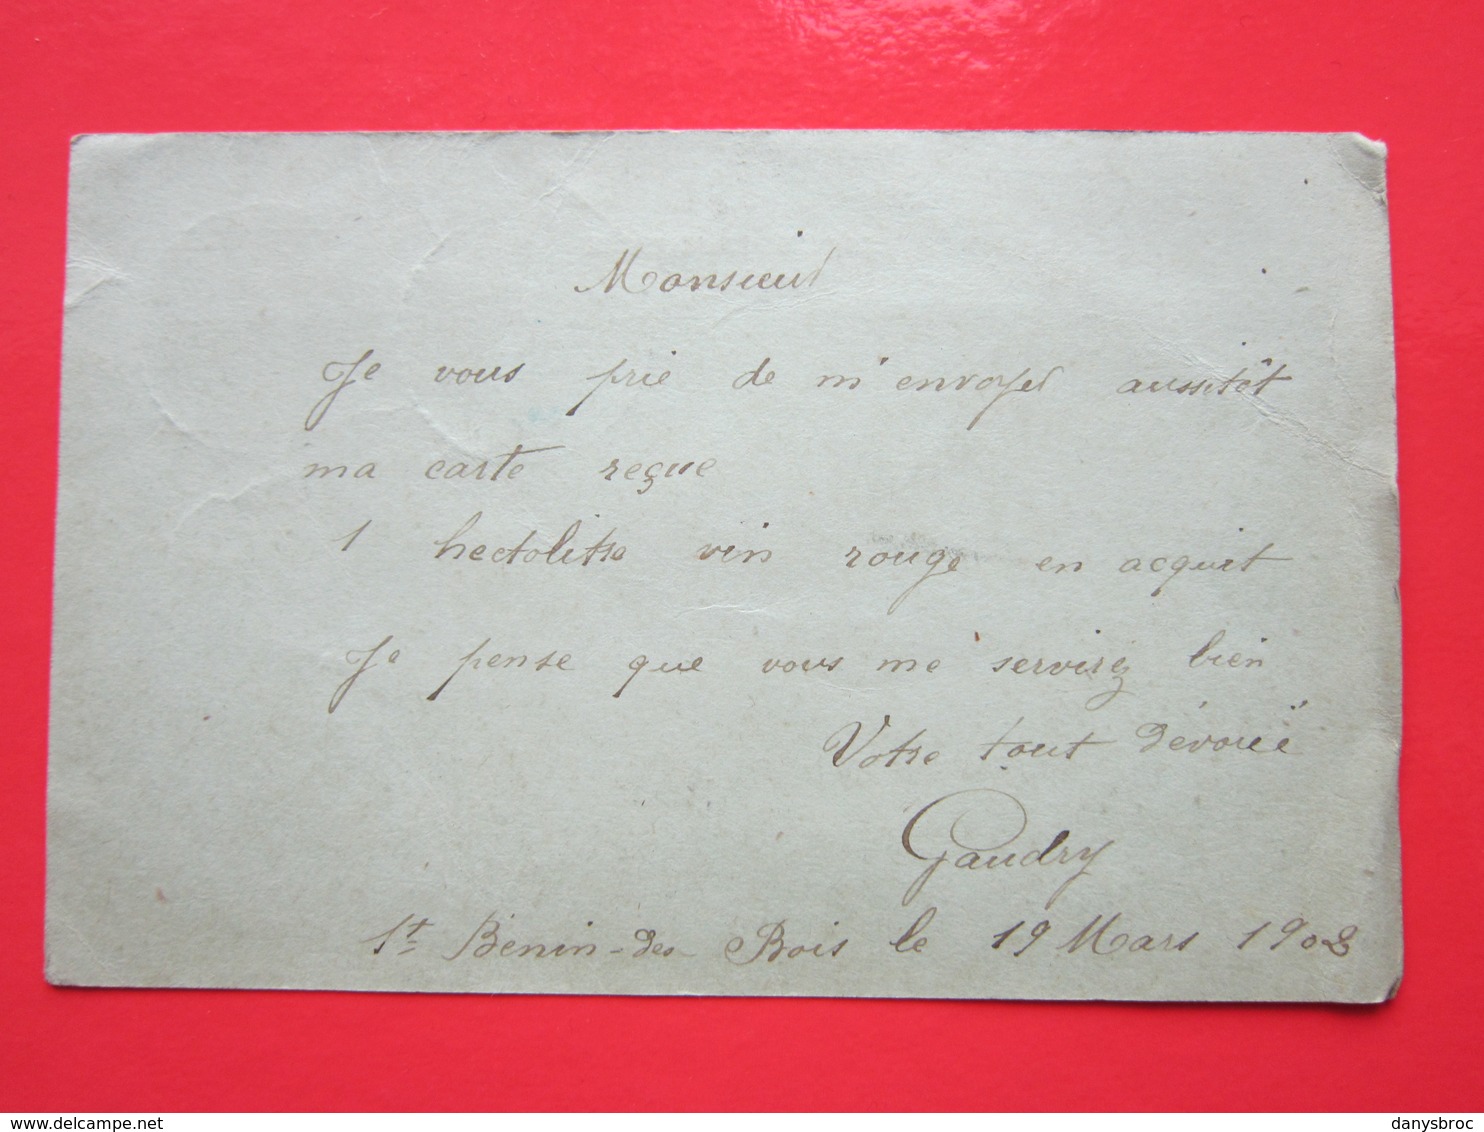 Monsieur
Je vous prie de m'envoyer aussitôt
ma carte reçue
1 hectolitre vin rouge en acquit
Je pense que vous me servirez bien
Votre tout dévoué
Gaudry
St Bénin-des Bois le 19 Mars 1902
delcampe.net
danysbroc